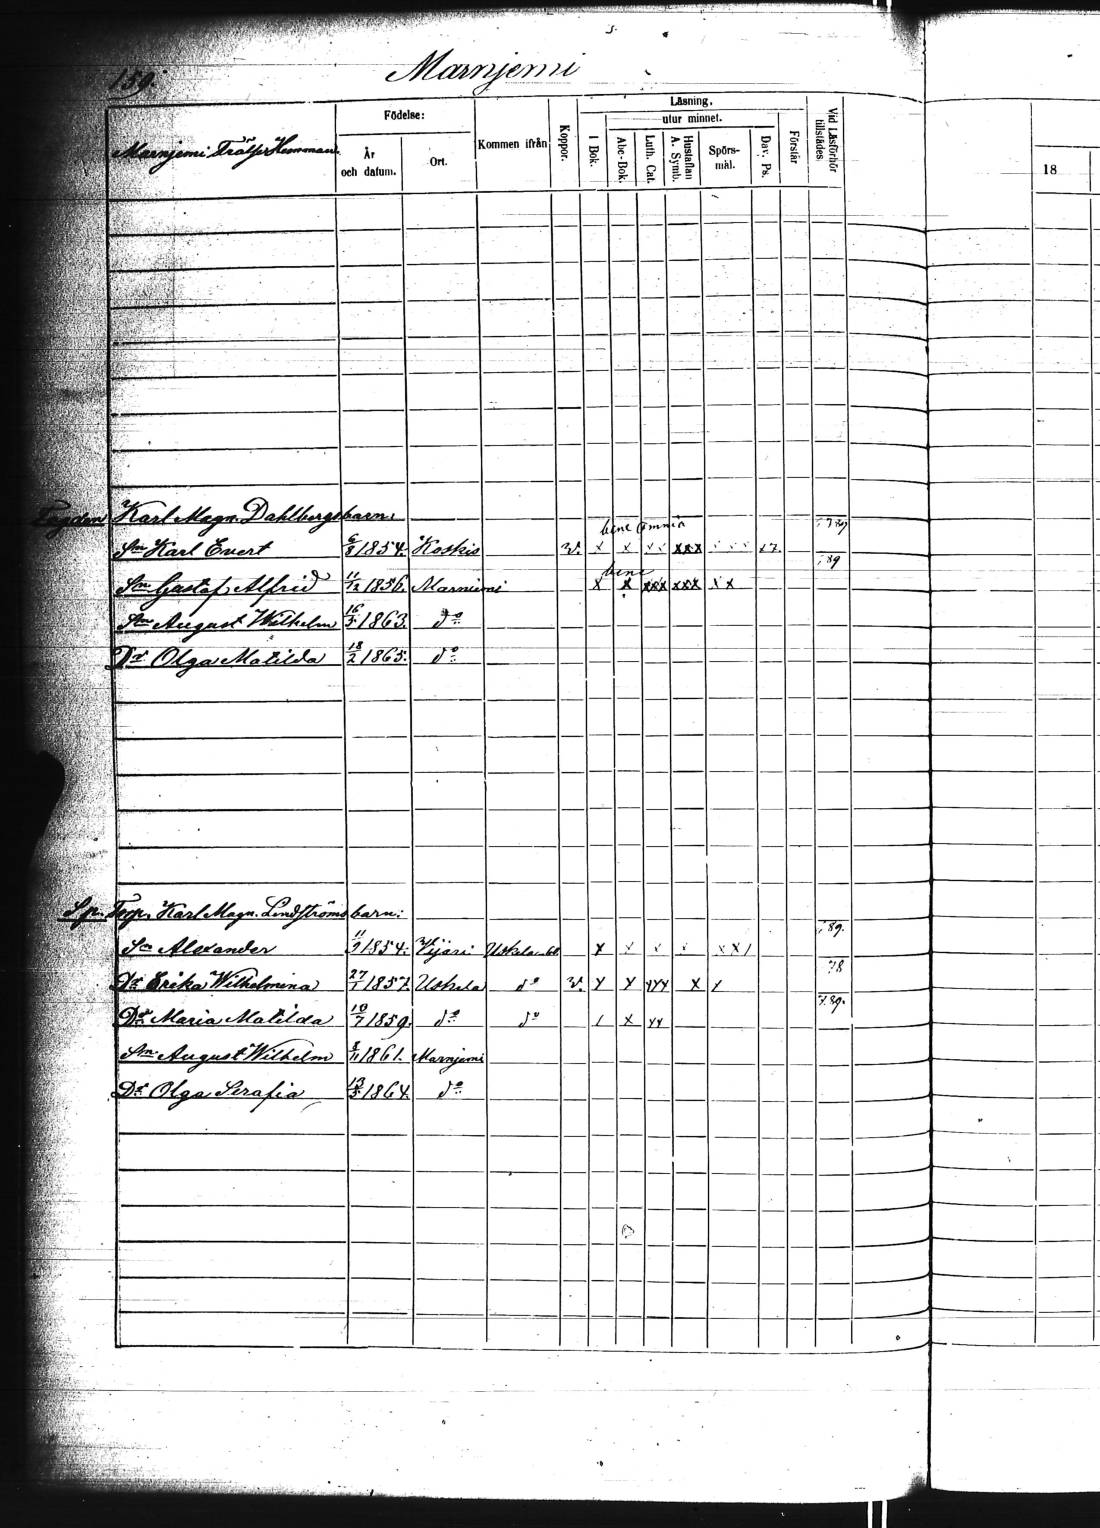 159.
Marnjemi
Marnjemi Frälse Hemman.
Födelse:
År och datum.
Ort.
Kommen ifrån
Koppor.
Läsning,
utur minnet.
I Bok.
Abc-Bok.
Luth. Cat.
Hustaflan A. Symb.
Spörs-mål.
Dav. Ps.
Förstår
Vid Läsförhör tillstädes.
18
Karl Magn. Dahlbergs barn:
bene omnia
Sn Karl Evert 6/8 1854. Koskis v. x x x x x x x x x x
bene 89
Sn Gustaf Alfrid 11/12 1856. Marniemi x x x x x x x x x x
Sn August Wilhelm 16/5 1863. do
Dr Olga Matilda 18/2 1865. do
Sp. Torp. Karl Magn. Lindströms barn:
89.
Sn Alexander 11/9 1854. Uskela x x x x x x
78
Dr Erika Wilhelmina 27/1 1857. Uskela do v.
89.
Dr Maria Matilda 10/7 1859. do do
Sn August Wilhelm 8/11 1861. Marnjemi
Dr Olga Serafia 13/5 1864. do